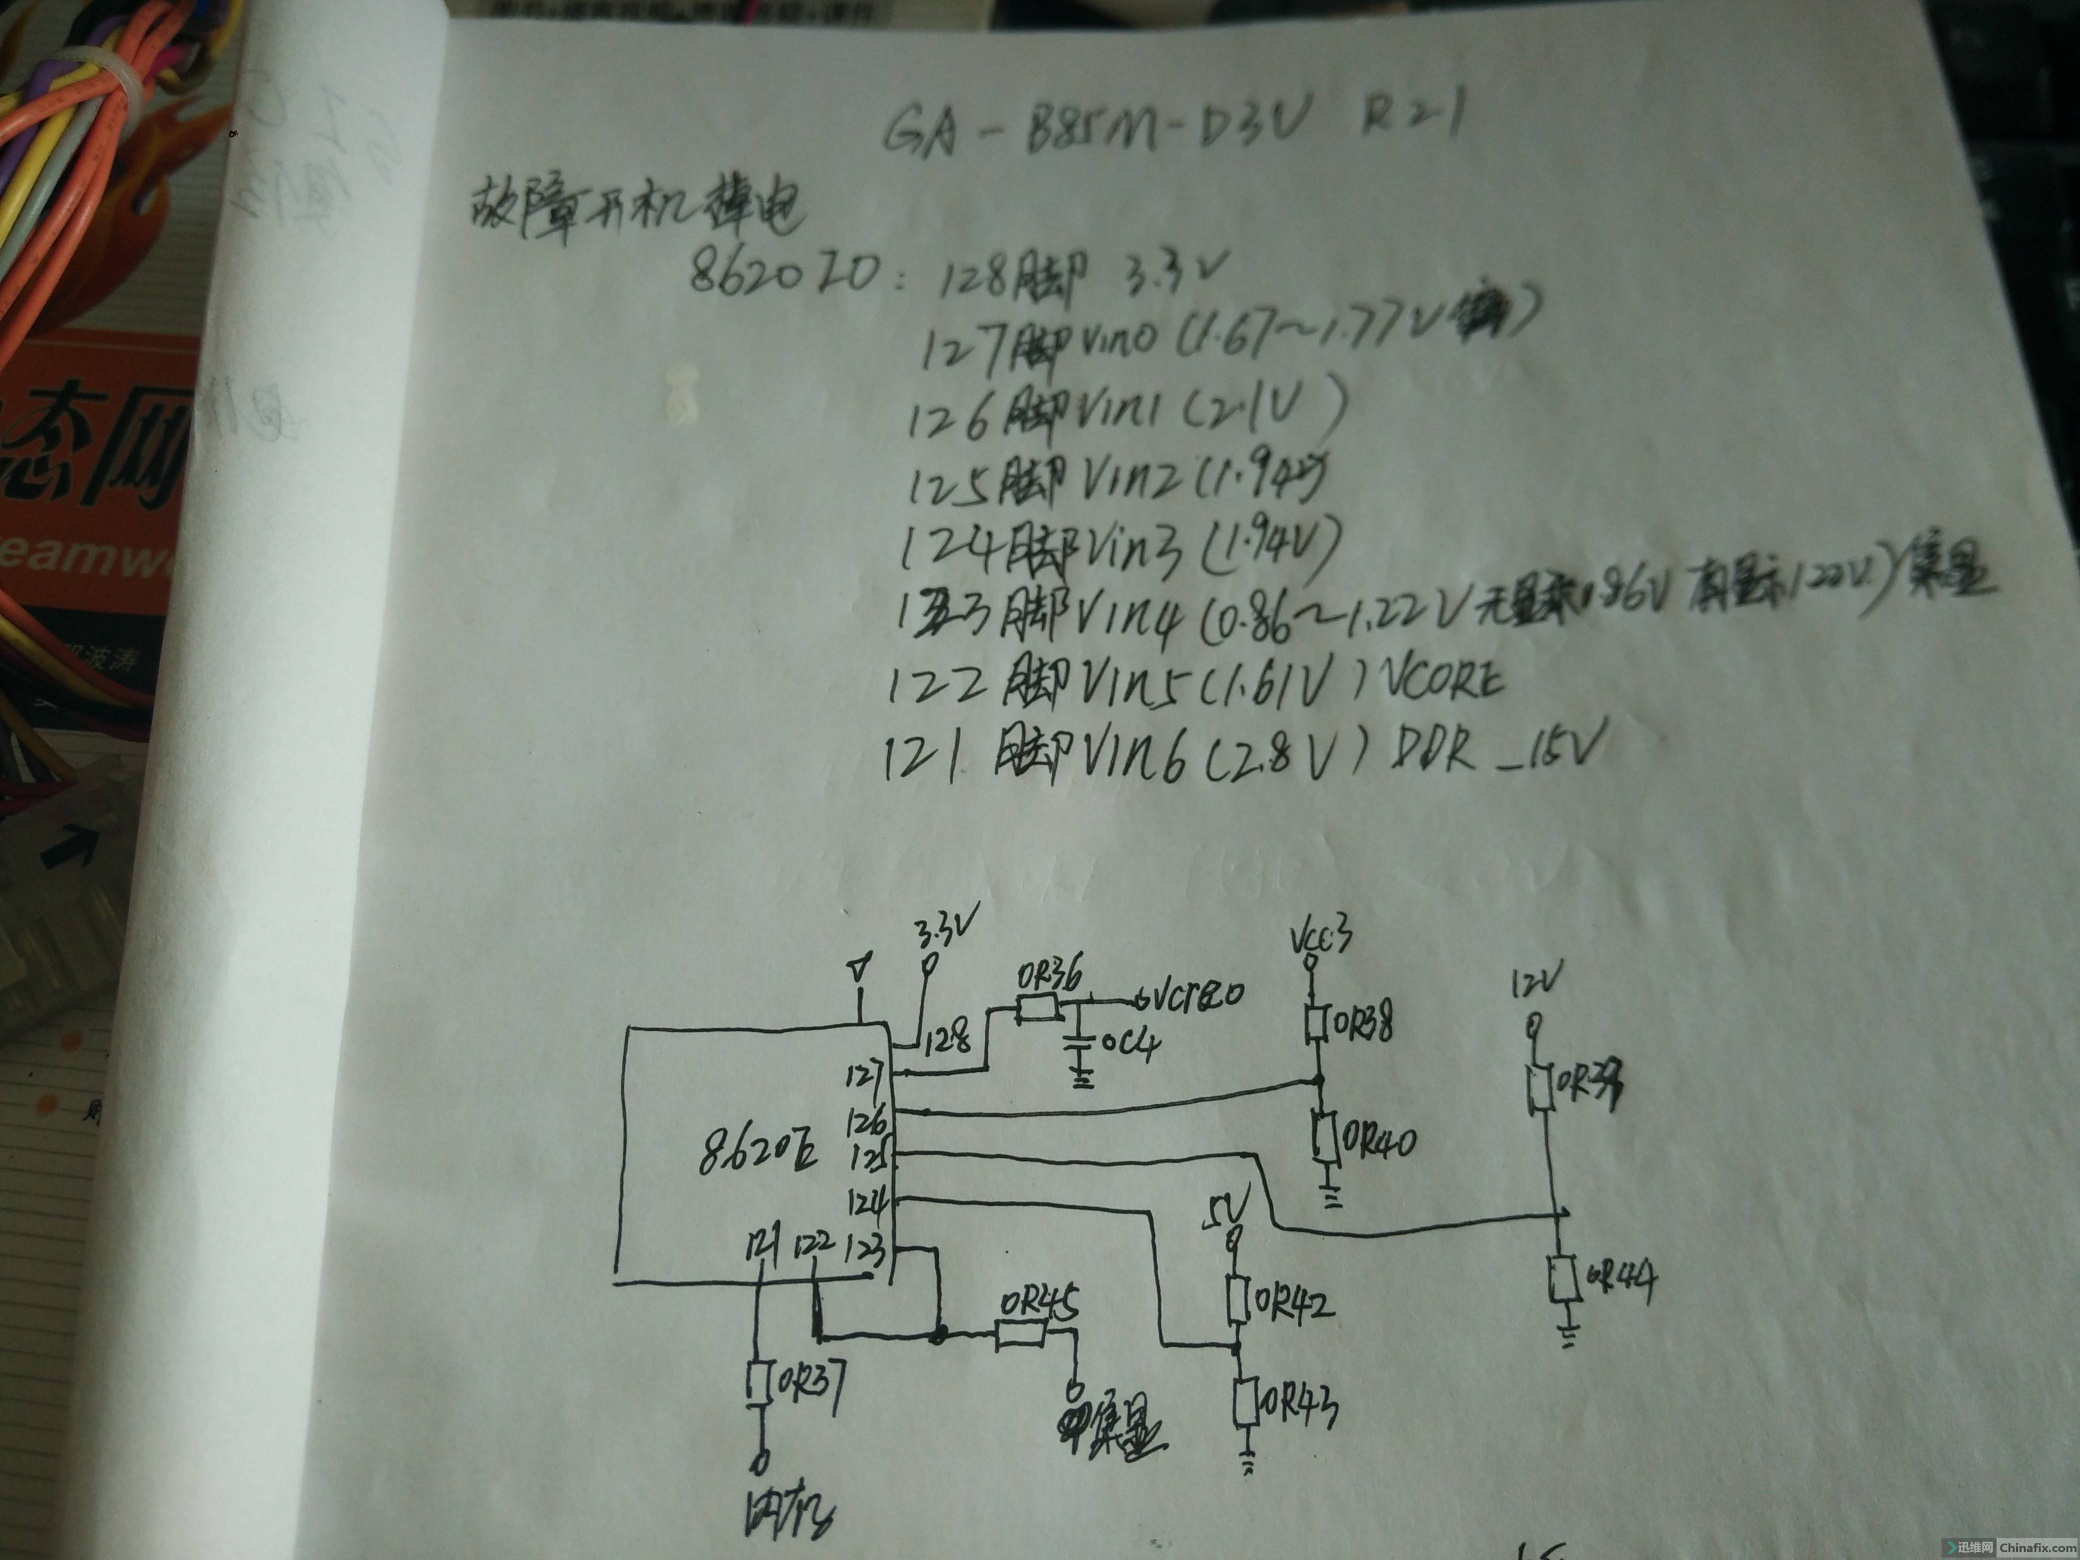 GA-B85M-D3V R21
故障开机掉电
8620 IO: 128脚 3.3V
127脚 Vin0 (1.67~1.77V)
126脚 Vin1 (2.1V)
125脚 Vin2 (1.94V)
124脚 Vin3 (1.94V)
123脚 Vin4 (0.86~1.22V 无显示0.86V 有显示1.22V) 集显
122脚 Vin5 (1.61V) VCORE
121脚 Vin6 (2.8V) DDR_15V
3.3V
VCC3
12V
0R36
128
0C4
0R38
127
0R39
126
8620E
125
0R40
124
5V
121 122 123
0R45
0R42
0R44
0R37
集显
0R43
内存
态网
eamw
波涛
迅维网 Chinafix.com